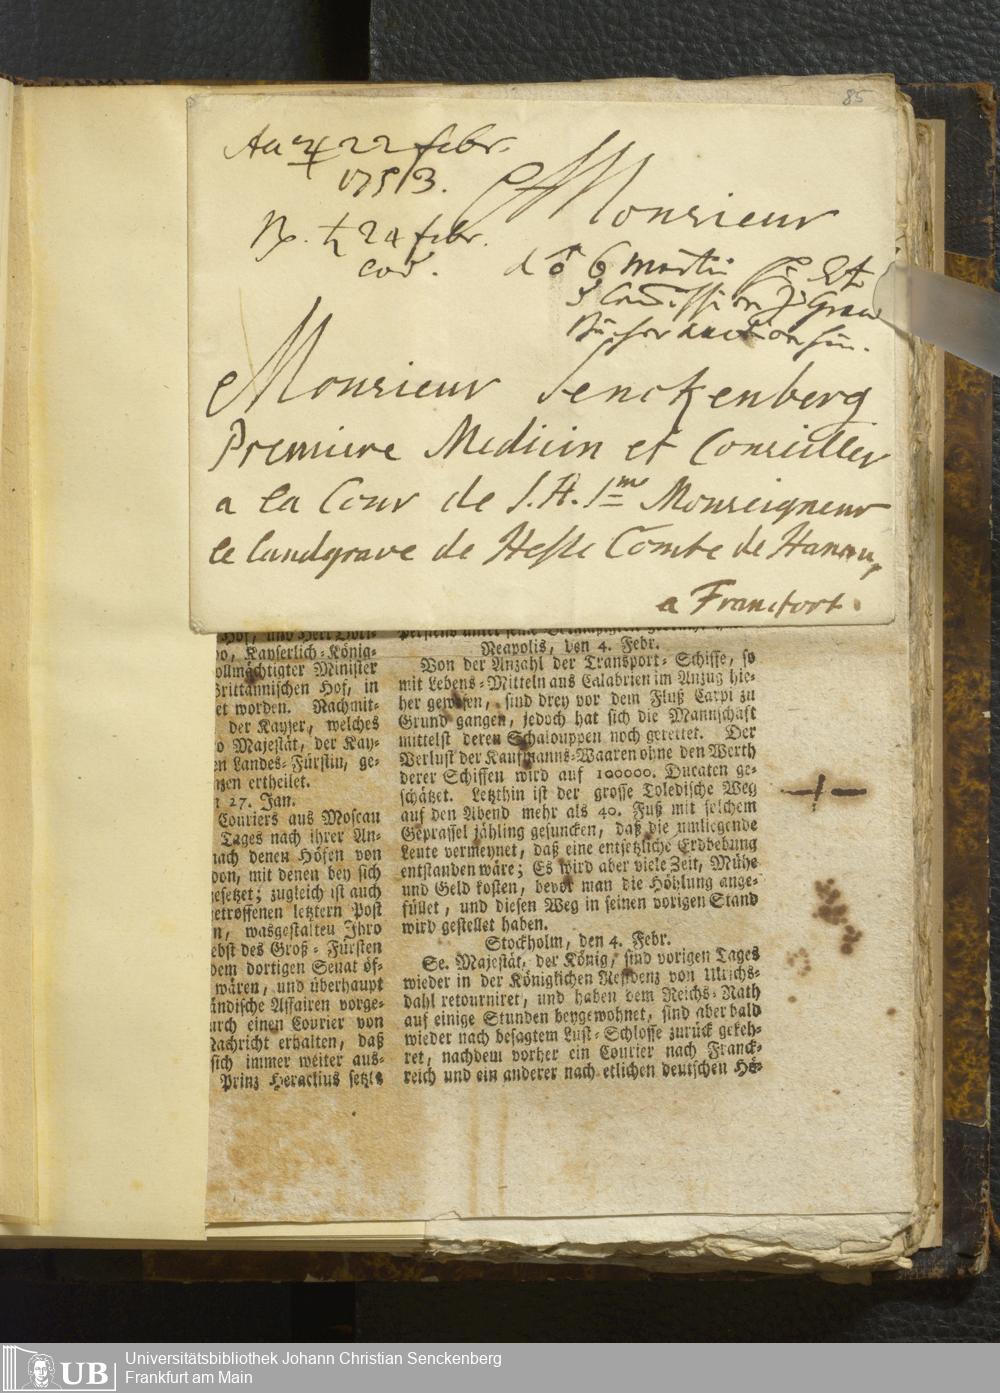 85
22 febr.
1753.
24 febr.
Monsieur
6 Martii
Monsieur Senckenberg
Premiere Medicin et Conseiller
a la Cour de S. A. S.me Monseigneur
le Landgrave de Hesse Comte de Hanau,
a Francfort.
Hof, und Herr
vo, Kayserlich-König-
ollmächtigter Minister
Brittannischen Hof, in
et worden. Nachmit-
der Kayser, welches
o Majestät, der Kay-
en Landes-Fürstin, ge-
nzen ertheilet.
27. Jan.
Couriers aus Moscau
Tages nach ihrer An-
nach denen Höfen von
don, mit denen bey sich
gesetzet; zugleich ist auch
getroffenen letztern Post
n, wasgestalten Ihro
ebst des Groß-Fürsten
dem dortigen Senat öf-
wären, und überhaupt
ändische Affairen vorge-
urch einen Courier von
Nachricht erhalten, daß
sich immer weiter aus-
Prinz Heraclius setzte
Neapolis, den 4. Febr.
Von der Anzahl der Transport-Schiffe, so
mit Lebens-Mitteln aus Calabrien im Anzug hie-
her gewesen, sind drey vor dem Fluß Carpi zu
Grund gangen, jedoch hat sich die Mannschaft
mittelst deren Schalouppen noch gerettet. Der
Verlust der Kaufmanns-Waaren ohne den Werth
derer Schiffen wird auf 100000. Ducaten ge-
schätzet. Letzthin ist der grosse Toledische Weg
auf den Abend mehr als 40. Fuß mit solchem
Geprassel jähling gesuncken, daß die umliegende
Leute vermeynet, daß eine entsetzliche Erdbebung
entstanden wäre; Es wird aber viele Zeit, Mühe
und Geld kosten, bevor man die Höhlung ange-
füllet, und diesen Weg in seinen vorigen Stand
wird gestellet haben.
Stockholm, den 4. Febr.
Se. Majestät, der König, sind vorigen Tages
wieder in der Königlichen Residenz von Ulrichs-
dahl retourniret, und haben dem Reichs-Rath
auf einige Stunden beygewohnet, sind aber bald
wieder nach besagtem Lust-Schlosse zurück gekeh-
ret, nachdem vorher ein Courier nach Franck-
reich und ein anderer nach etlichen deutschen Hö-
UB
Universitätsbibliothek Johann Christian Senckenberg
Frankfurt am Main